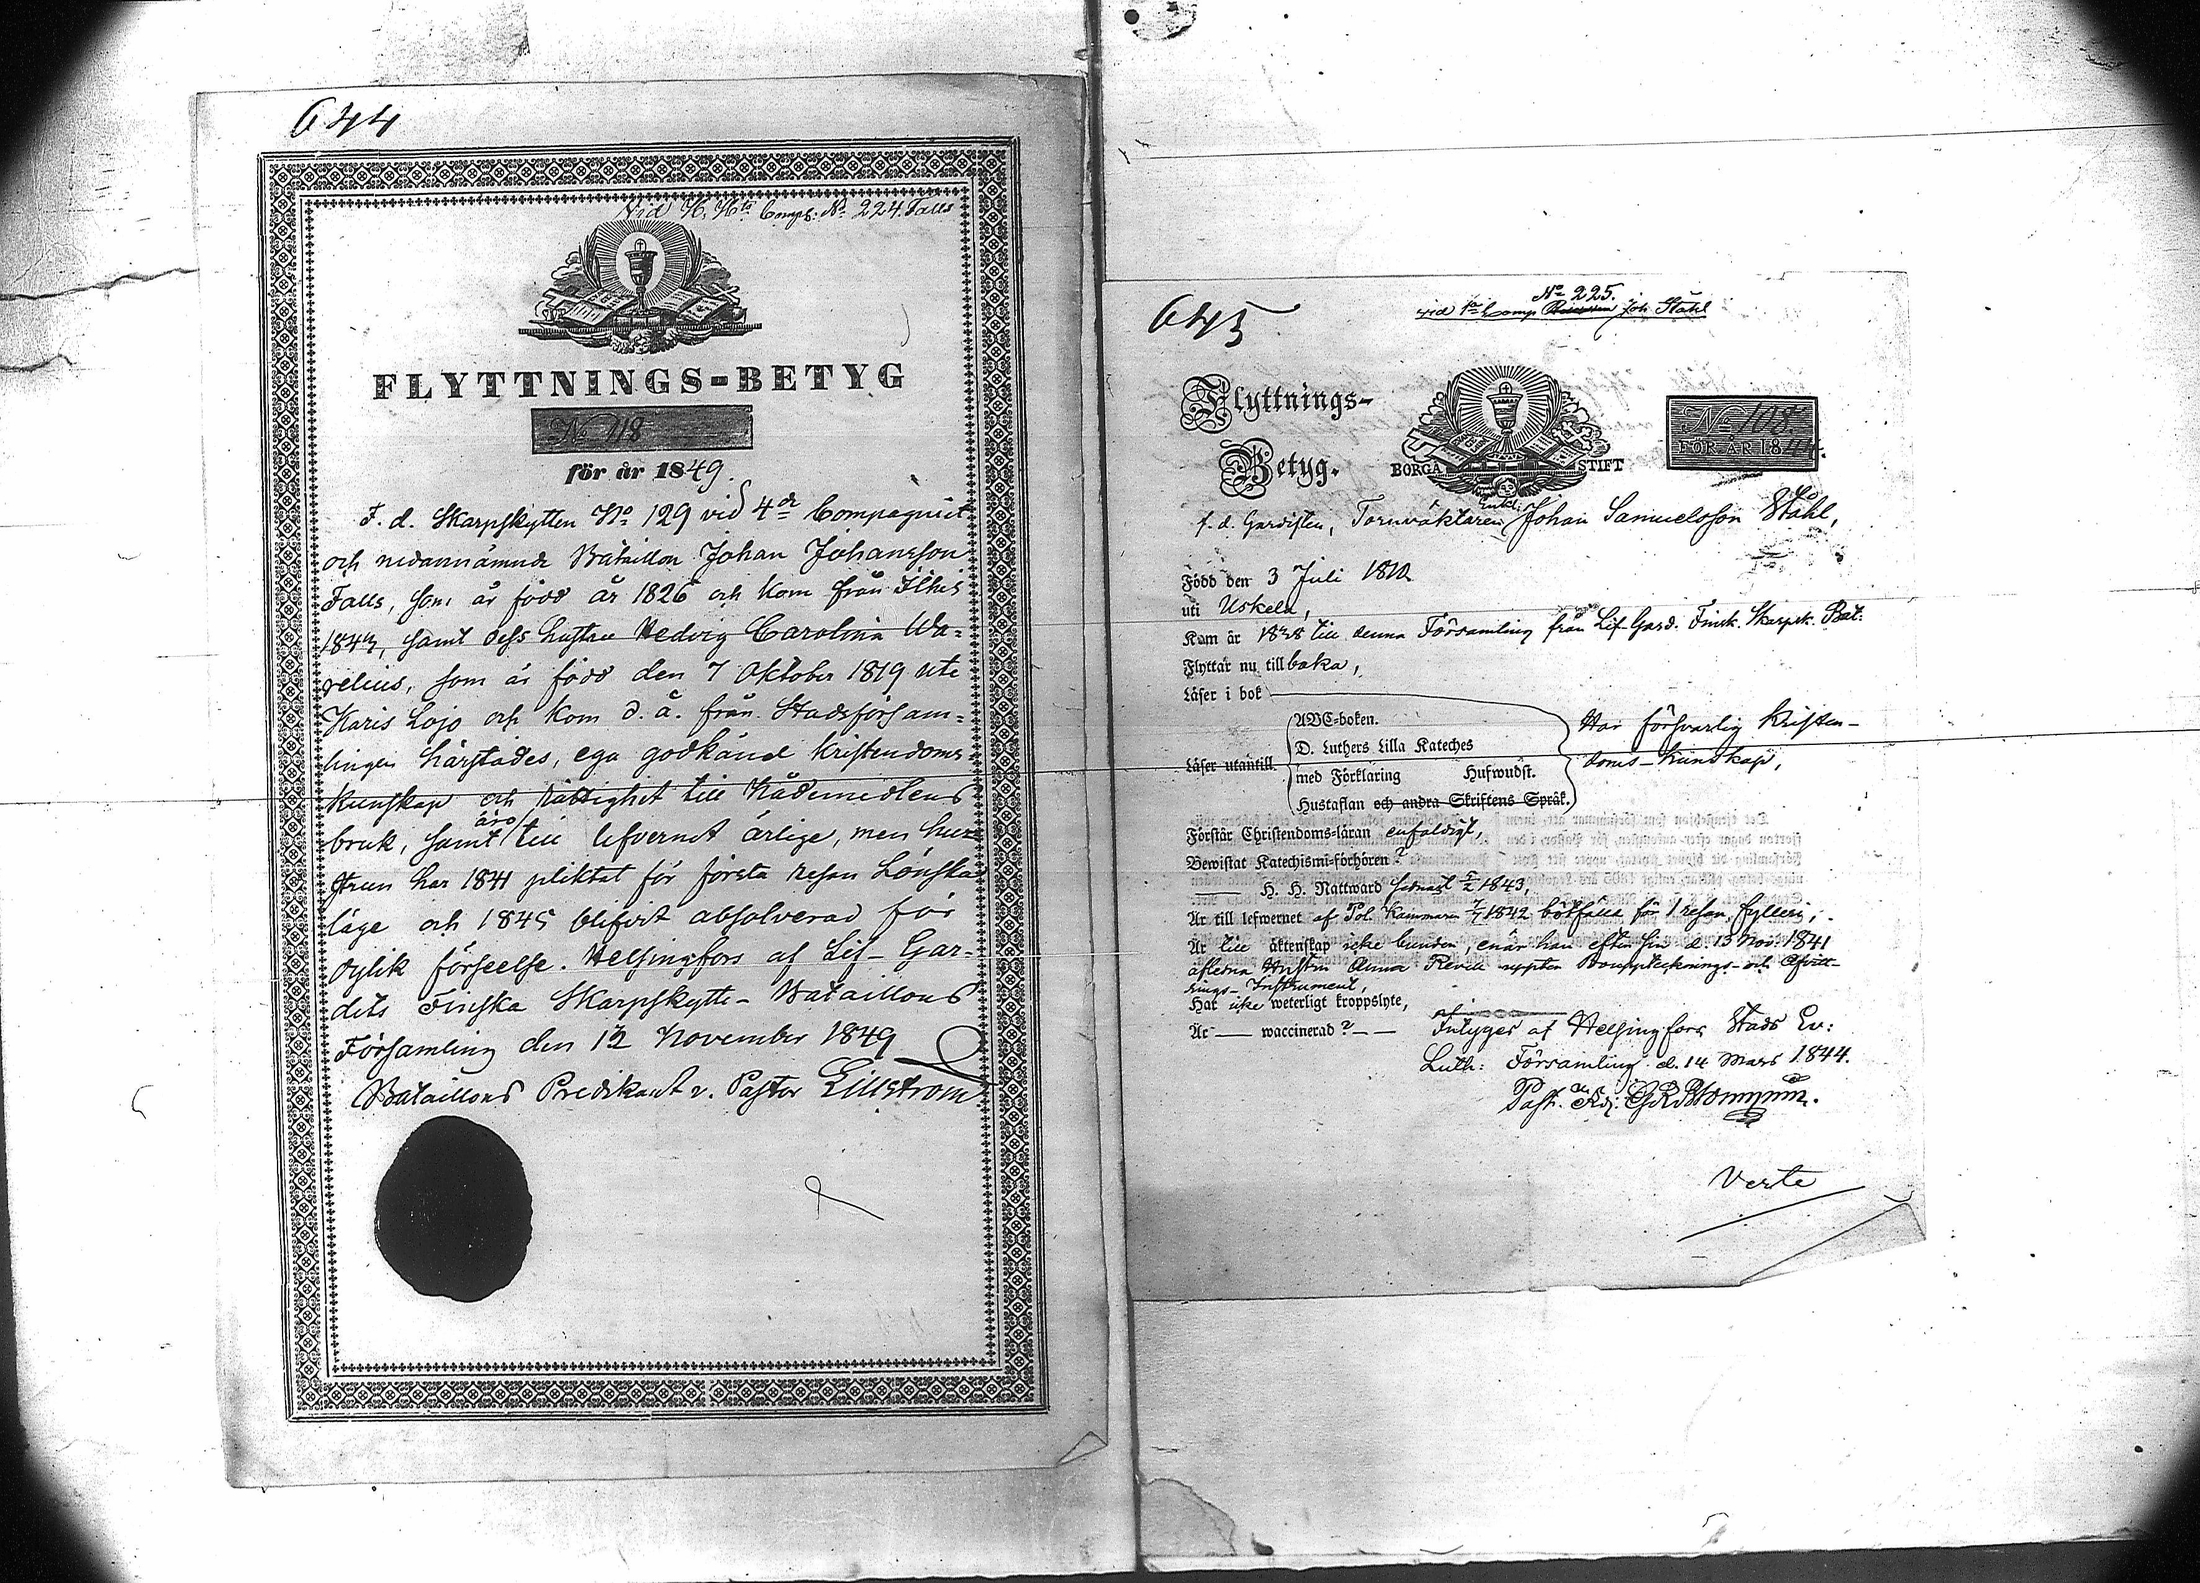 644
Vid Comp: No 224. Falls
FLYTTNINGS-BETYG
No 118
för år 1849.
F. d. Skarpskytten No 129 vid 4de Compagniet
och nedannämnde Bataillon Johan Johansson
Falls, som är född år 1826 och kom från
1847, samt dess hustru Hedvig Carolina Wa-
relius, som är född den 7 Oktober 1819 uti
Karis Lojo och kom d. å. från Stadsförsam-
lingen härstädes, ega godkänd Kristendoms
kunskap och rättighet till Nådemedlens
bruk, samt äro till lefvernet ärlige, men hu-
strun har 1841 pliktat för första resan Lönska
läge och 1845 blifvit absolverad för
dylik förseelse. Helsingfors af Lif-Gar-
dets Finska Skarpskytte-Bataillons
Församling den 12 November 1849
Bataillons Predikant v. Pastor Lillström
645
No 225.
vid 1a Comp Joh Ståhl
Flyttnings-
Betyg.
BORGÅ STIFT
No 108
FÖR ÅR 1844.
f. d. Gardisten, Tornväktaren Enkl. Johan Samuelsson Ståhl,
Född den 3 Juli 1810
uti Uskela,
Kom år 1838 till denna Församling från Lif Gard. Finsk. Skarpsk. Bat:
Flyttar nu tillbaka,
Läser i bok
ABC-boken.
D. Luthers Lilla Kateches
Läser utantill med Förklaring Hufwudst.
Hustaflan och andra Skriftens Språk.
Har försvarlig Kristen-
doms-kunskap,
Förstår Christendoms-läran enfaldigt,
Bewistat Katechismi-förhören ?
H. H. Nattward sednast 1843,
Är till lefwernet af Pol. Kammaren 1842 bötfälld för 1 resan fylleri,
Är till äktenskap icke bunden, enär han efter sin d. 13 Nov. 1841
aflidna Hustru Anna upptett Boupptecknings- och Afvitt-
rings-Instrument,
Har icke weterligt kroppslyte,
Är waccinerad ?
Intyges af Helsingfors Stads Ev:
Luth: Församling d. 14 Mars 1844.
Past. Adj.
Verte